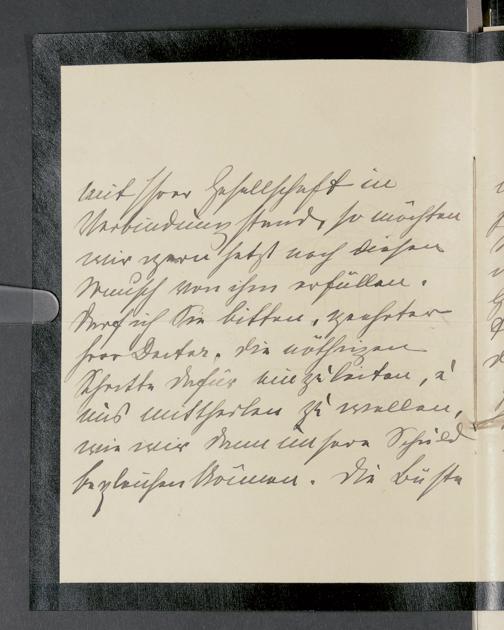 mit Ihrer Gesellschaft in
Verbindung stand, so möchten
wir gern jetzt noch diesen
Wunsch von ihm erfüllen.
Darf ich Sie bitten, geehrter
Herr Doctor, die nöthigen
Schritte dafür einzuleiten, u
uns mittheilen zu wollen,
wie wir dann unsere Schuld
begleichen können. Die Büste